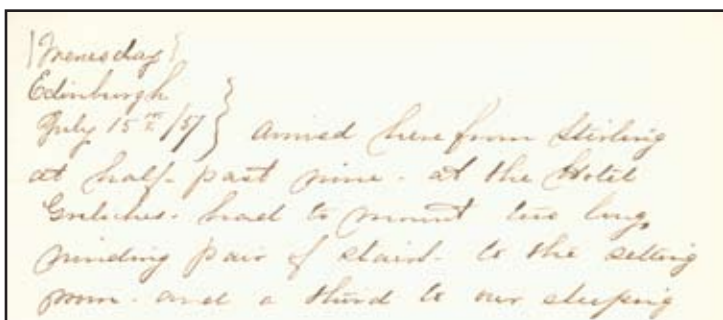 Wenesday }
Edinburgh
July 15th /57 } arrived here from Stirling
at half-past nine. at the Hotel
had to mount two long
winding pair of stairs. to the setting
room. and a third to our sleeping